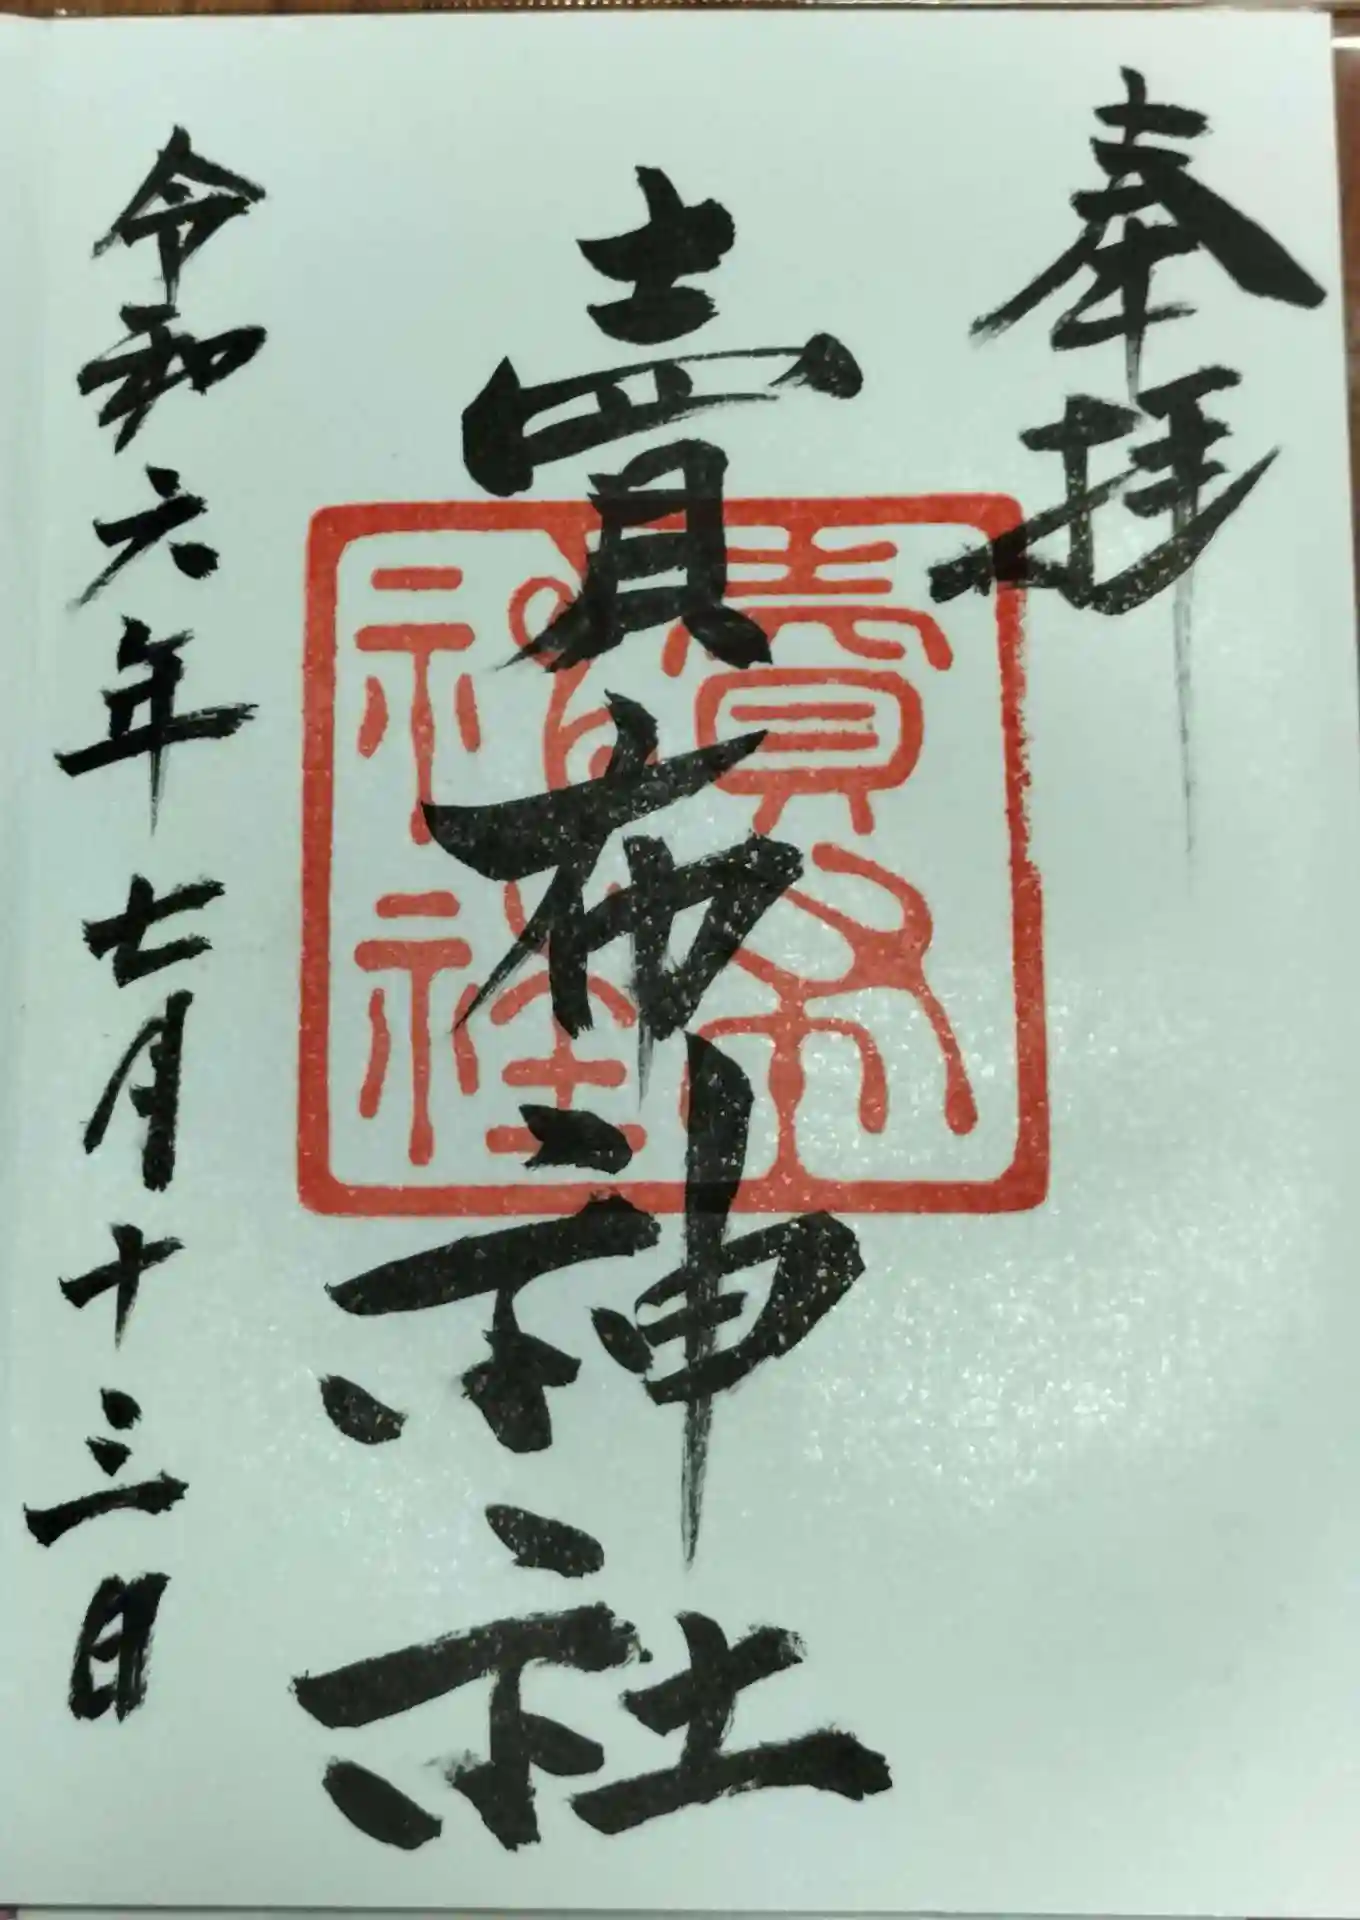 奉拝
賣布神社
令和六年七月十三日
賣布
神社